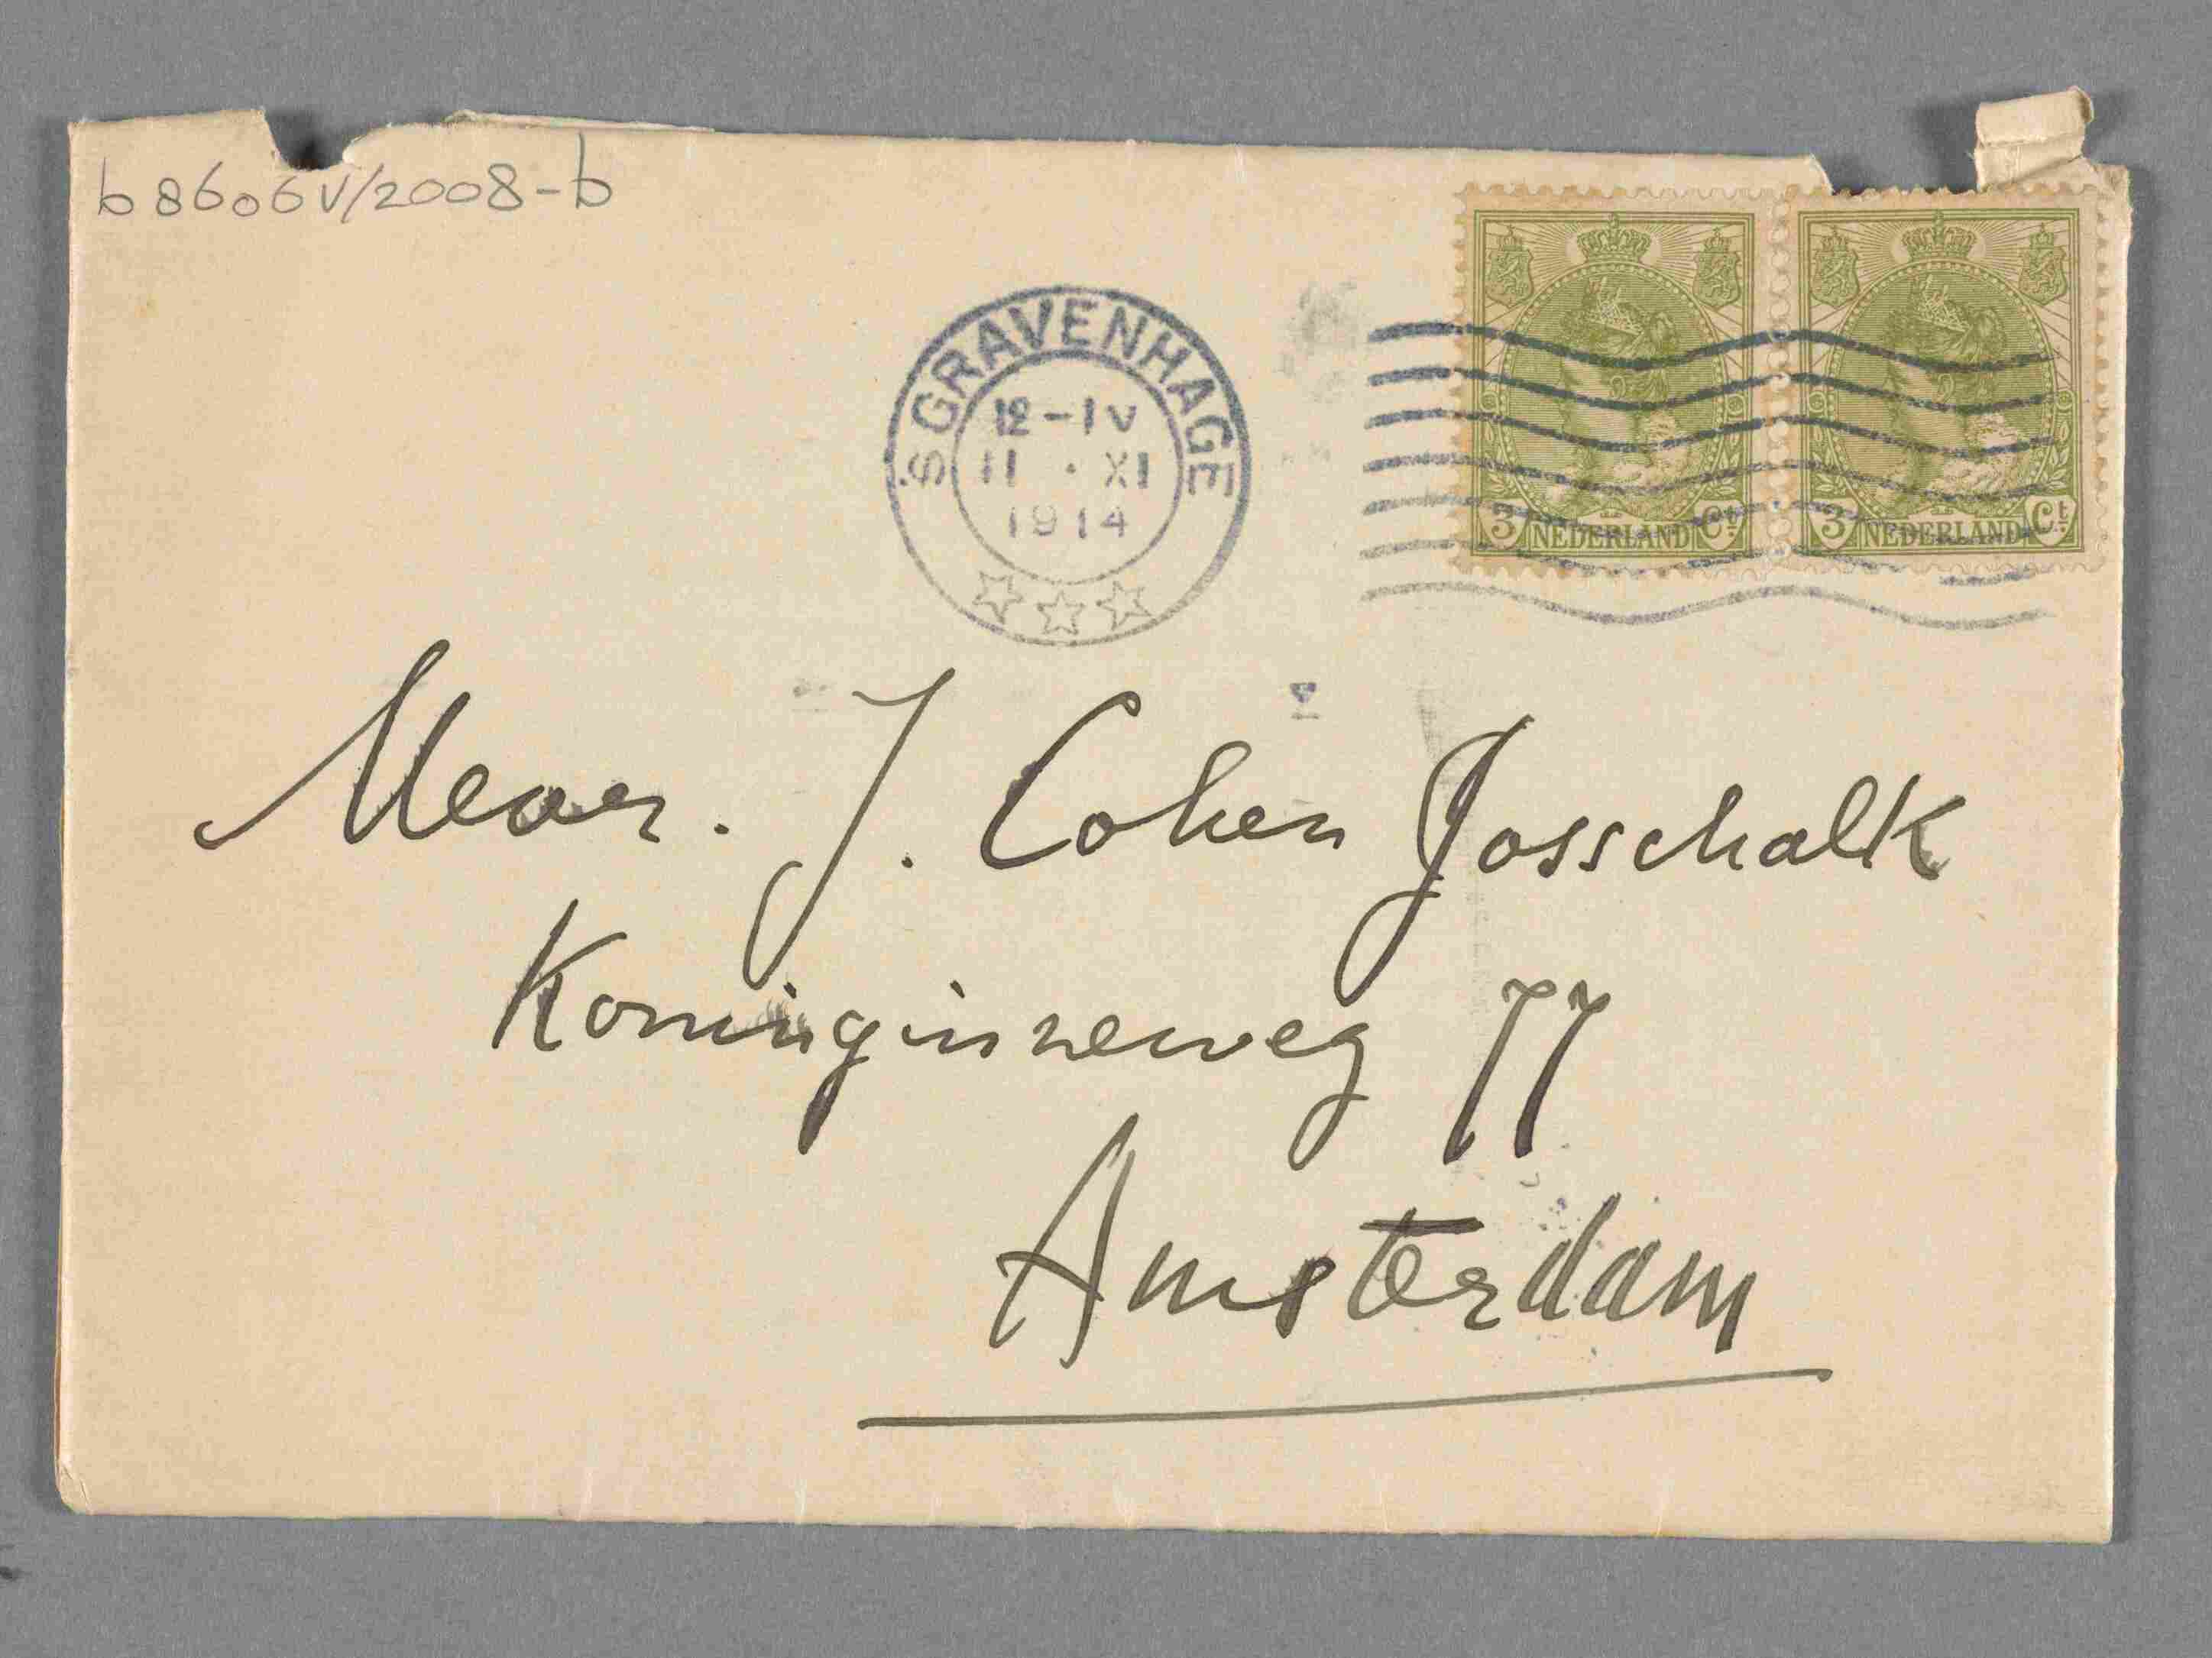 b 8606 V/2008-b
'S GRAVENHAGE
12-1V
11 · XI
1914
3 NEDERLAND Ct
3 NEDERLAND Ct
J. Cohen Gosschalk
Koninginneweg 77
Amsterdam